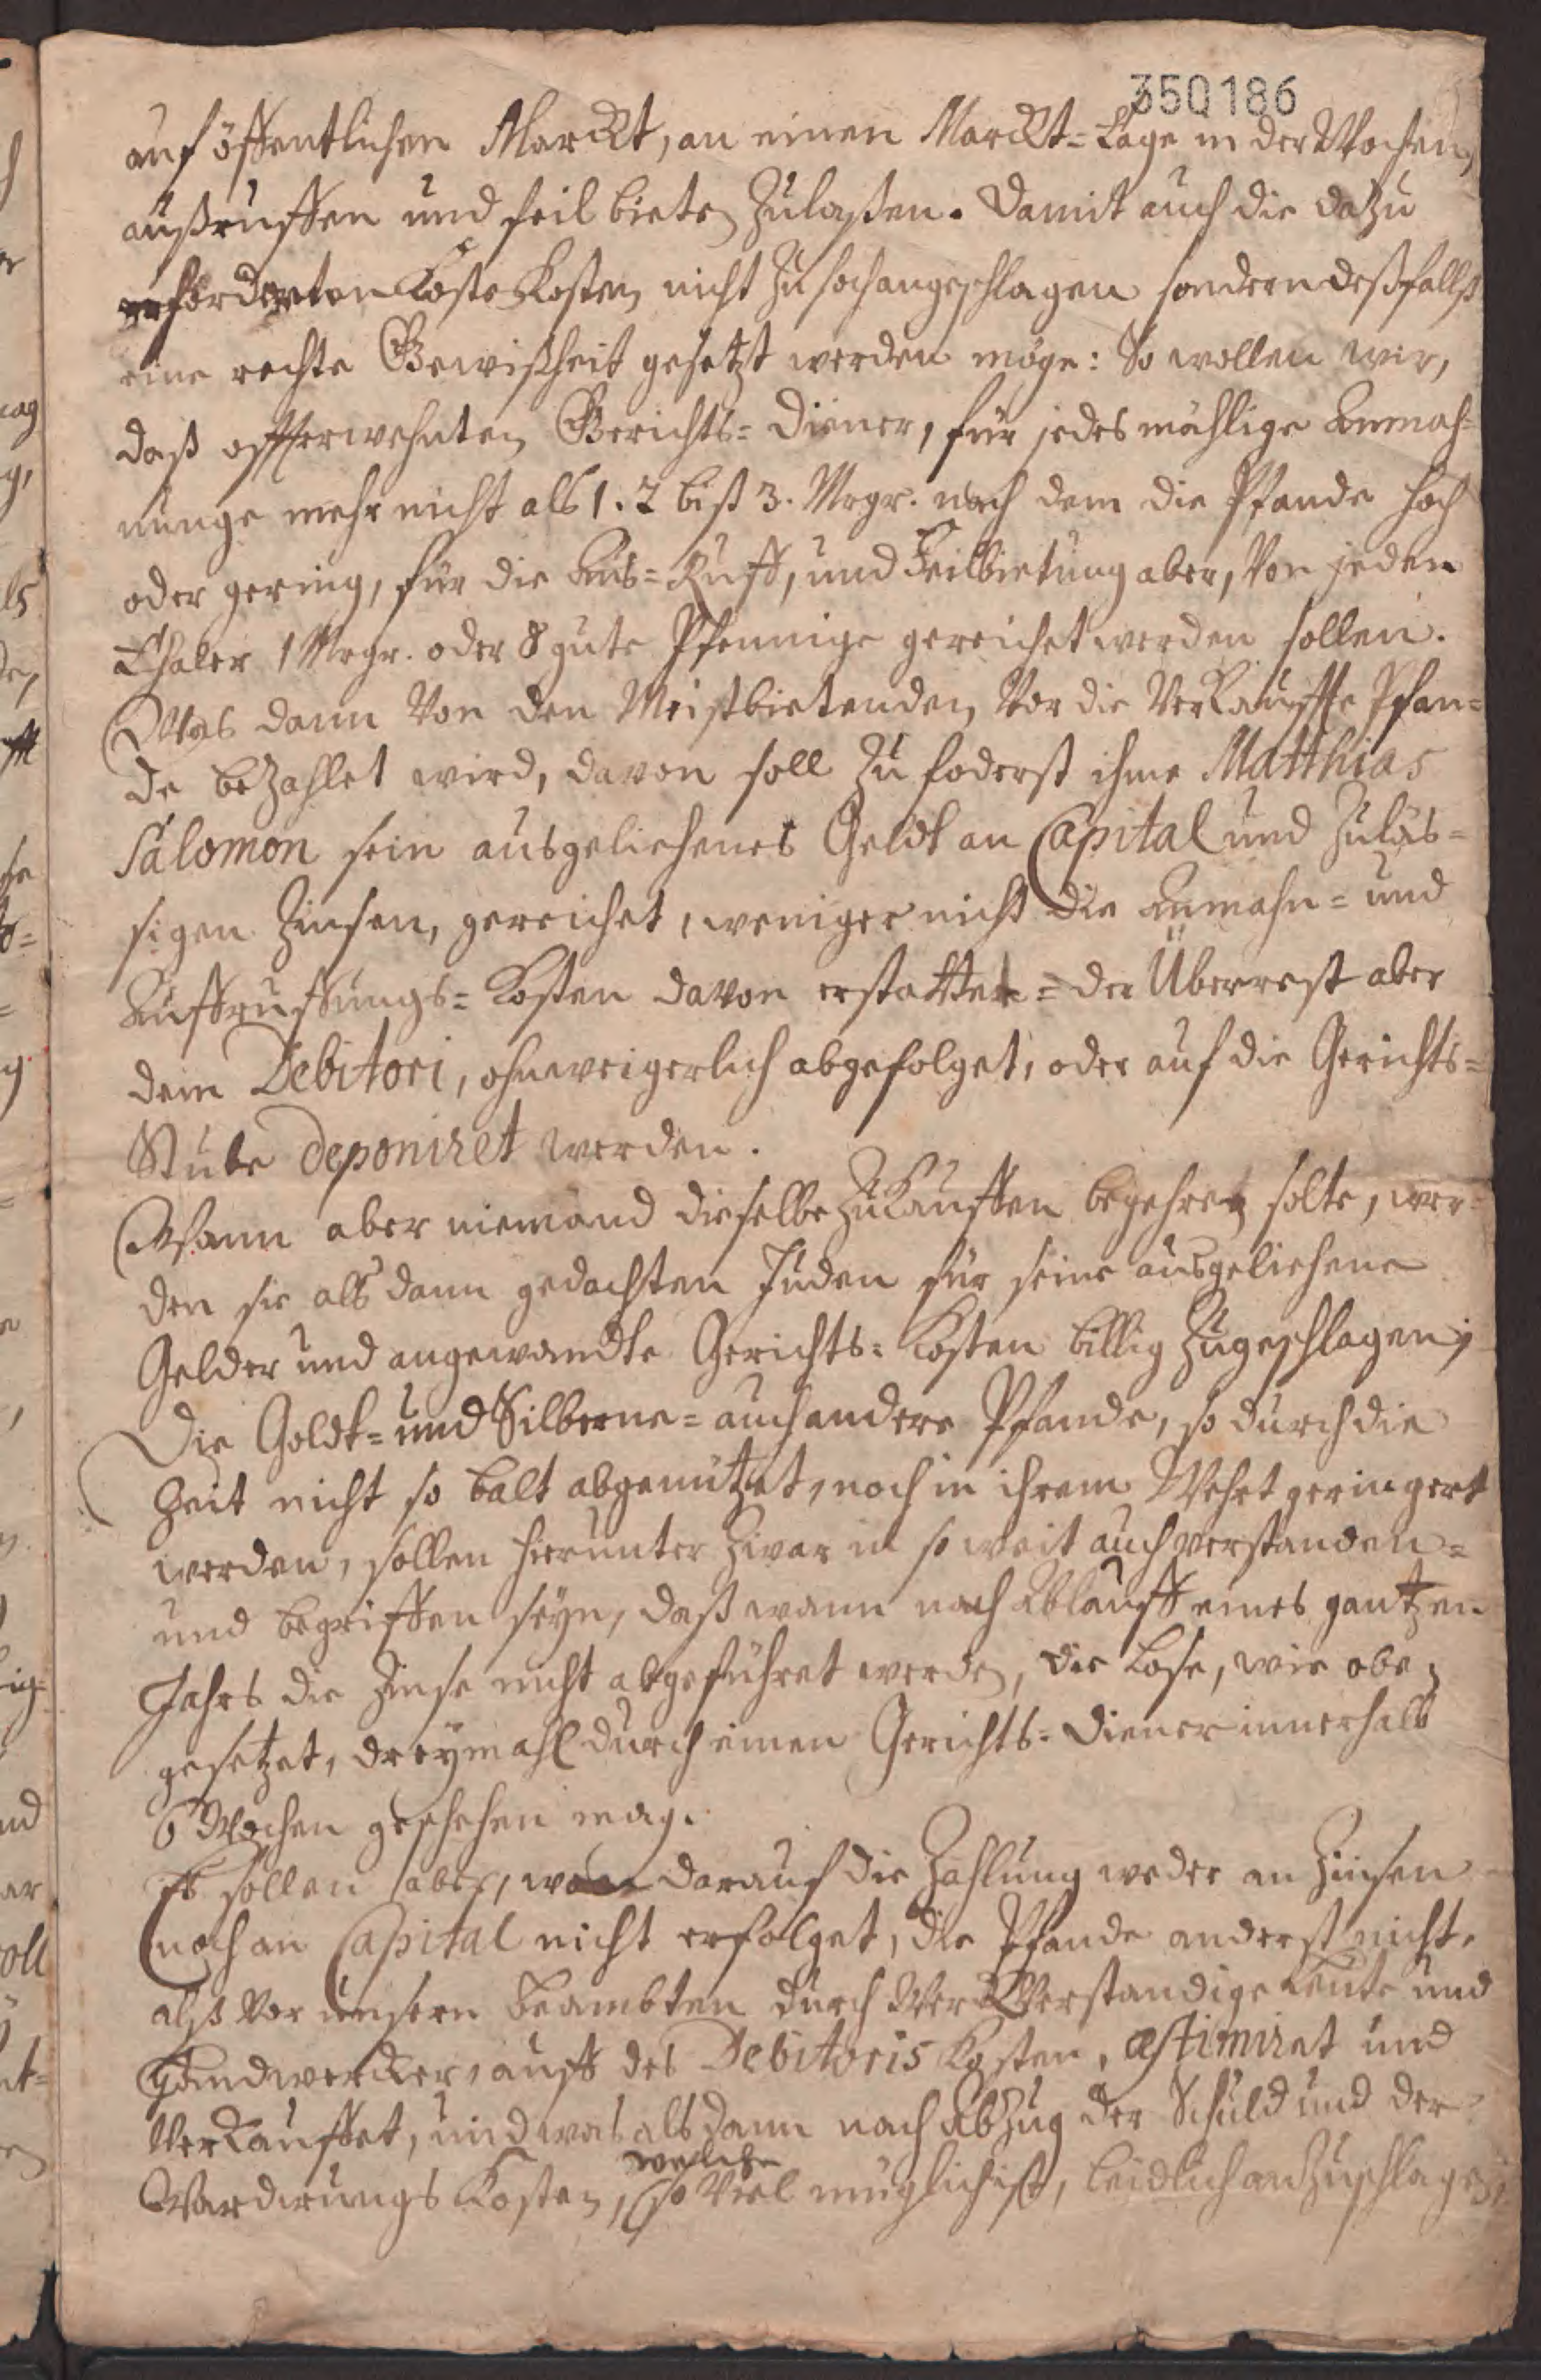 350186
auf öffentlichen Marckt, an einen Marckt=Tage in der Wochen,
außruffen und feil bieten zulaßen. Damit auch die dazu
erforderten Kosten nicht zu hoch angeschlagen sondern deßfallß
eine rechte Gewißheit gesetzt werden möge: So wollen wir,
daß offterwehnten Gerichts=Diener, für jedesmählige Anmah=
nunge mehr nicht alß 1. 2 biß 3. Mrgr. nach dem die Pfande hoch
oder gering, für die Aus=Ruff, und Feilbietung aber, von jeden
Thaler 1 Mrgr. oder 8 gute Pfennige gereichet werden sollen.
Was dann von den Meistbietenden, vor die verkauffte Pfan=
de bezahlet wird, davon soll zu foderst ihme Matthias
Salomon sein ausgeliehenes Geldt an Capital und zuläs=
sigen Zinsen, gereichet, weniger nicht die Anmahn= und
Auffruffungs=Kosten davon erstattet= der Überrest aber
dem Debitori, ohnweigerlich abgefolget, oder auf die Gerichts=
Stube deponiret werden.
Wann aber niemand dieselbe zukauffen begehren solte, wer=
den sie alß dann gedachten Juden für seine ausgeliehene
Gelder und angewandte Gerichts=Kosten billig zugeschlagen;
Die Goldt= und Silberne= auch andere Pfande, so durch die
Zeit nicht so balt abgenutzet, noch in ihrem Wehrt geringert
werden, sollen hierunter zwar in so weit auch verstanden=
und begriffen seyn, daß wann nach Ablauff eines gantzen
Jahrs die Zinse nicht abgeführet werden, die Lose, wie oben
gesetzet, dreymahl durch einen Gerichts=Diener innerhalb
6 Wochen geschehen mag.
Es sollen aber, wan darauf die Zahlung weder an Zinsen
noch an Capital nicht erfolget, die Pfande anderst nicht,
alß vor unsern Beambten durch Werckverstandige Leute und
Handwercker, auff des Debitoris Kosten, æstimiret und
verkauffet, und was alsdann nach Abzug der Schuld und der
Wardirungs Kosten, welche so viel müglich ist, leidlich anzuschlagen,